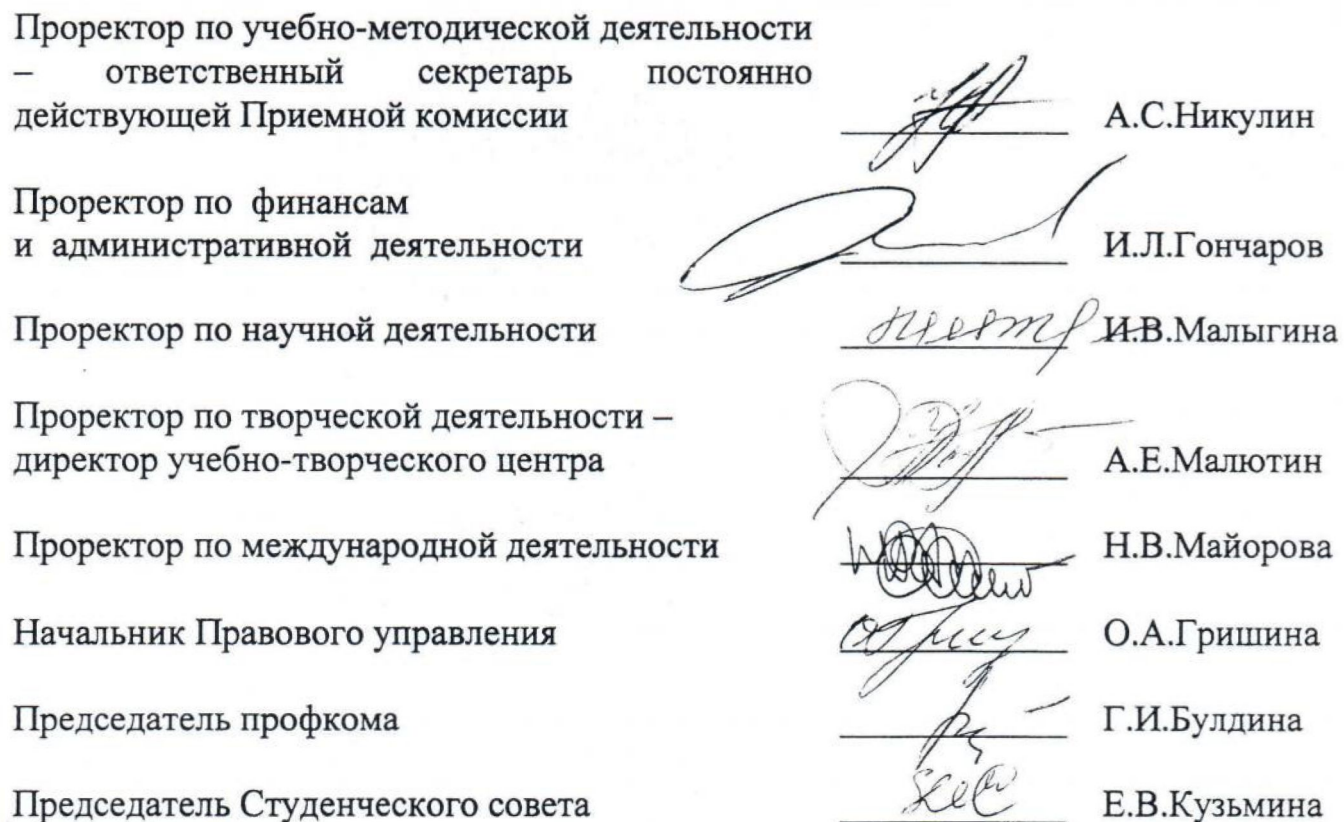 Проректор по учебно-методической деятельности
– ответственный секретарь постоянно
действующей Приемной комиссии А.С.Никулин
Проректор по финансам
и административной деятельности И.Л.Гончаров
Проректор по научной деятельности И.В.Малыгина
Проректор по творческой деятельности –
директор учебно-творческого центра А.Е.Малютин
Проректор по международной деятельности Н.В.Майорова
Начальник Правового управления О.А.Гришина
Председатель профкома Г.И.Булдина
Председатель Студенческого совета Е.В.Кузьмина